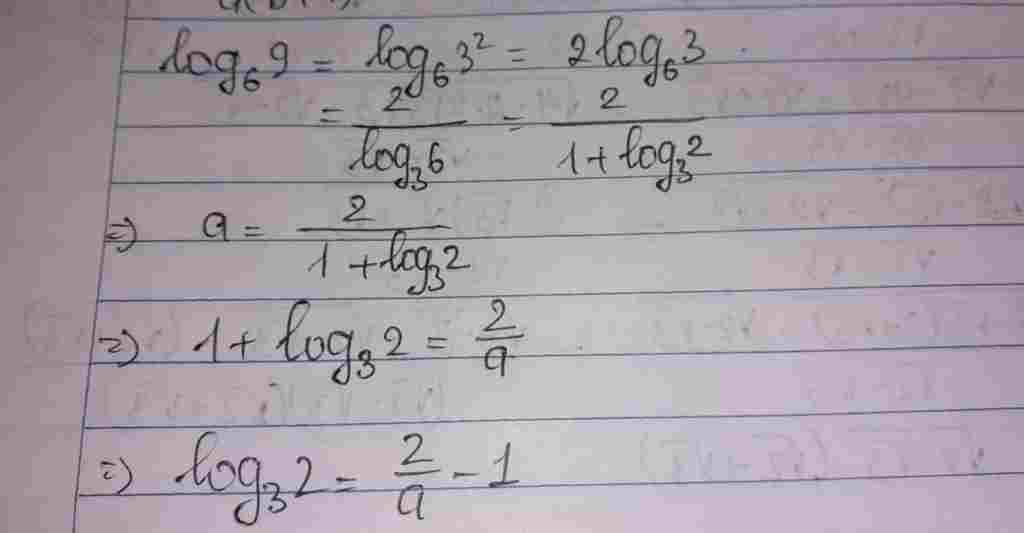 log₆9 = log₆3² = 2log₆3
= 2/log₃6 = 2/(1 + log₃2)
=> a = 2/(1 + log₃2)
=> 1 + log₃2 = 2/a
=> log₃2 = 2/a - 1